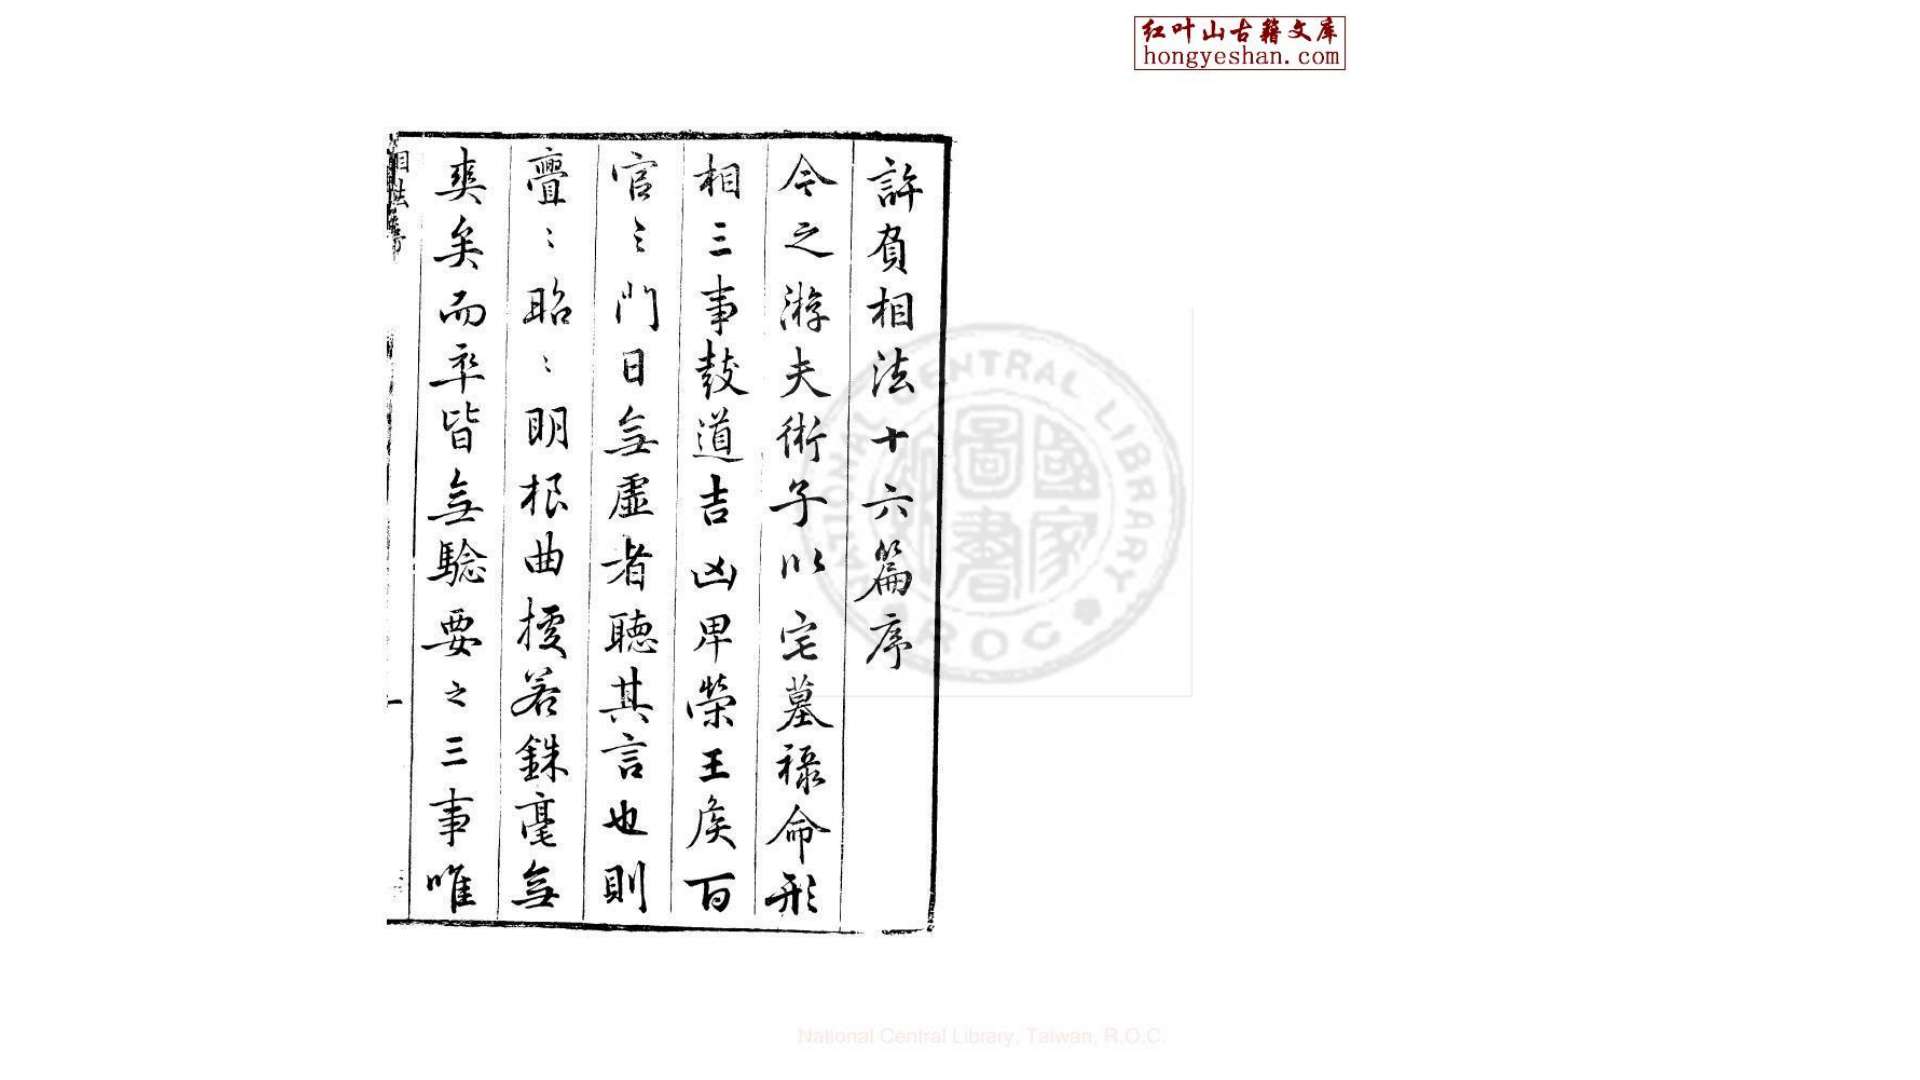 红叶山古籍文库
hongyeshan.com
許負相法十六篇序
今之游夫術子以宅墓禄命形
相三事鼓道吉凶卑榮王矦百
官〻門日無虛者聽其言也則
亹〻昭〻明根曲㨿若銖毫無
爽矣而卒皆無驗要之三事唯
相法序
一
NATIONAL CENTRAL LIBRARY
R.O.C.
國家圖書館
National Central Library, Taiwan, R.O.C.